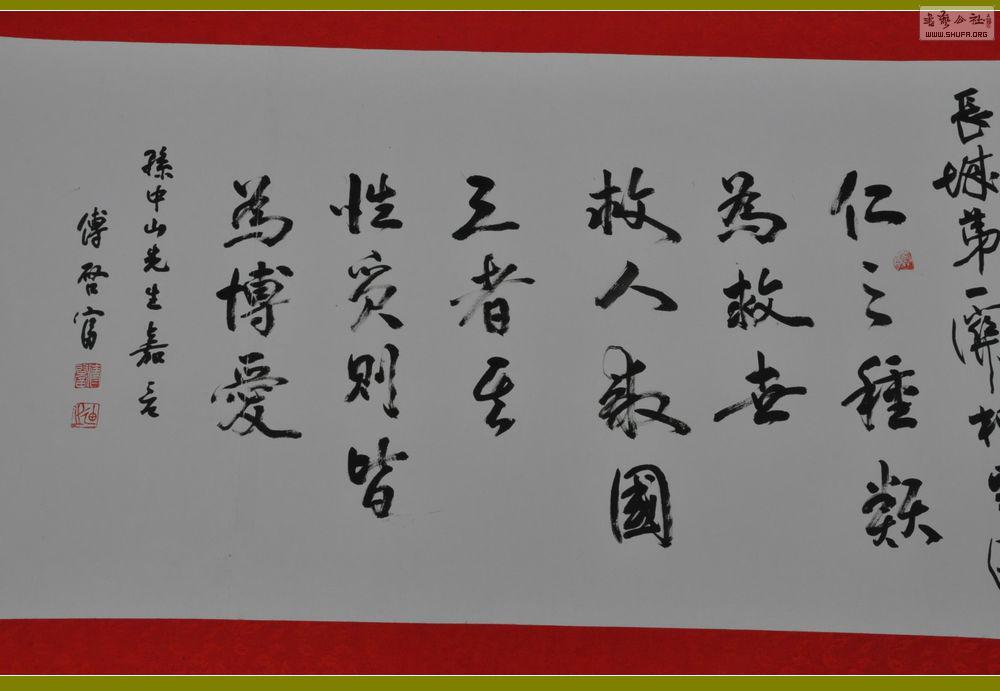 長城第一
仁之種類
為救世
救人救國
三者其
性質則皆
為博愛
孫中山先生嘉言
傅啓富
WWW.SHUFA.ORG